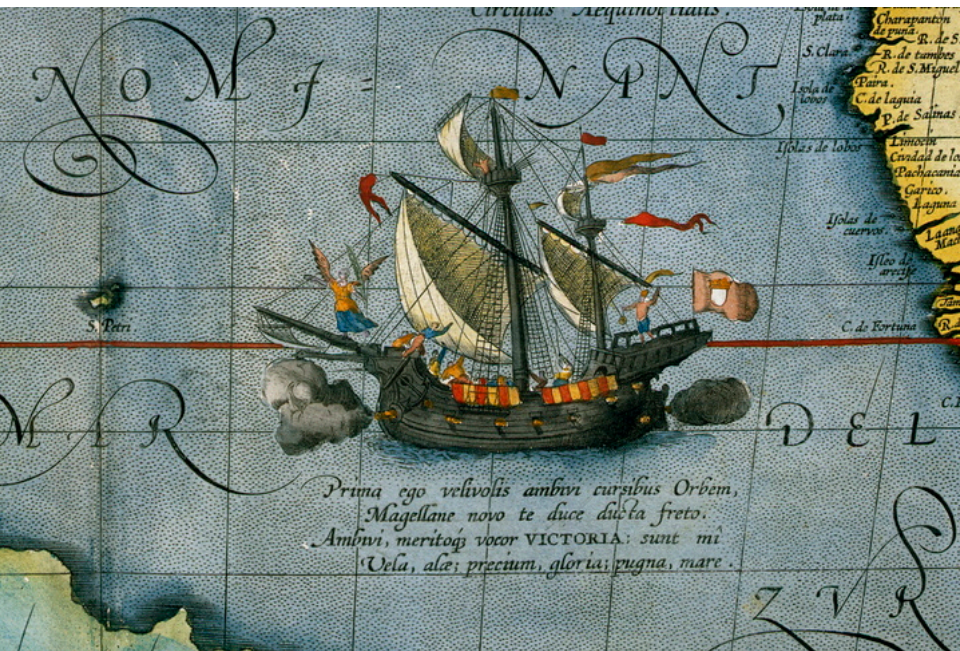 Circulus Aequinoctialis
plata.
Charapanton
de puna.
S. Clara.
R. de tumbes
R. de S. Miquel
Isola de
lobos
Paira.
C. de laguia
P. de Salinas
NOMI-NANT,
Isolas de lobos
Limocin
Cividad de
Pachacama
Garico.
Laguna
Isolas de
cuervos.
Isleo de
arecife
S. Petri
C. de Fortuna
MAR DEL
Prima ego velivolis ambivi cursibus Orbem,
Magellane novo te duce ducta freto.
Ambivi, meritoq; vocor VICTORIA: sunt mi
Vela, alæ; precium, gloria; pugna, mare.
ZVR